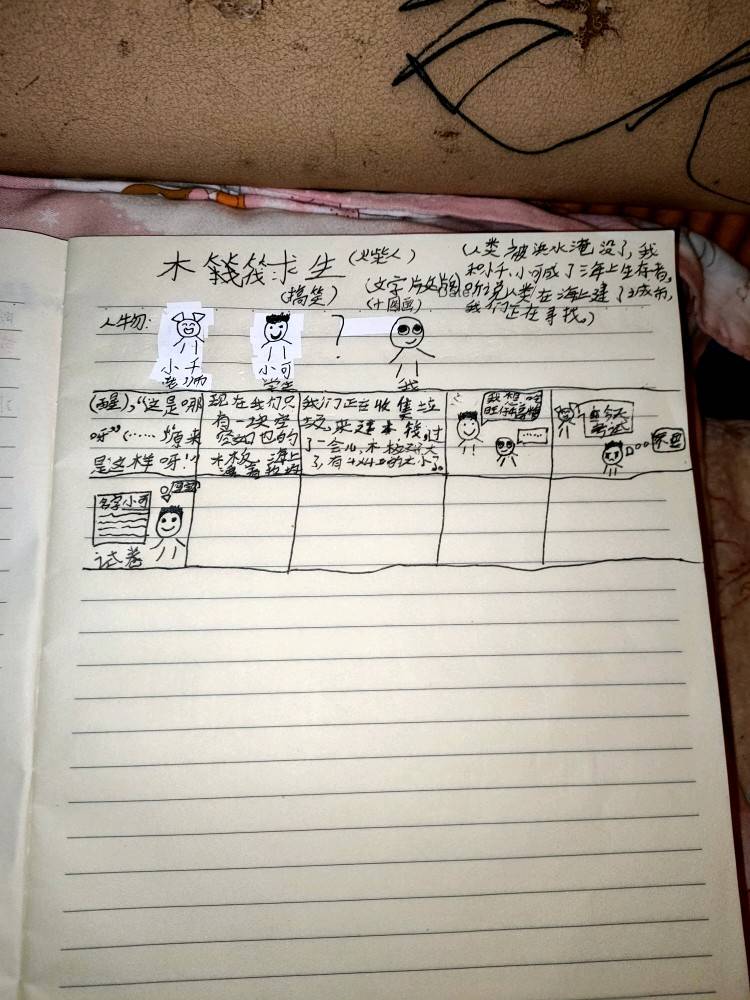 木筏求生
(火柴人)
(搞笑)
(文字
(+图画)
(人类被洪水淹没了,我
和小千、小可成了海上生存者,
听说人类在海上建了城市,
我们正在寻找。)
人物:
小千
老师
小可
学生
?
我
(醒),“这是哪
呀”(……原来
是这样呀!)
现在我们只
有一块
木板,海上
我们正在收集垃
圾,来建木筏,过
了一会儿,木板
了,有4×4的大小了。
我想吃
旺仔
……
今天
考试
名字小可
试卷